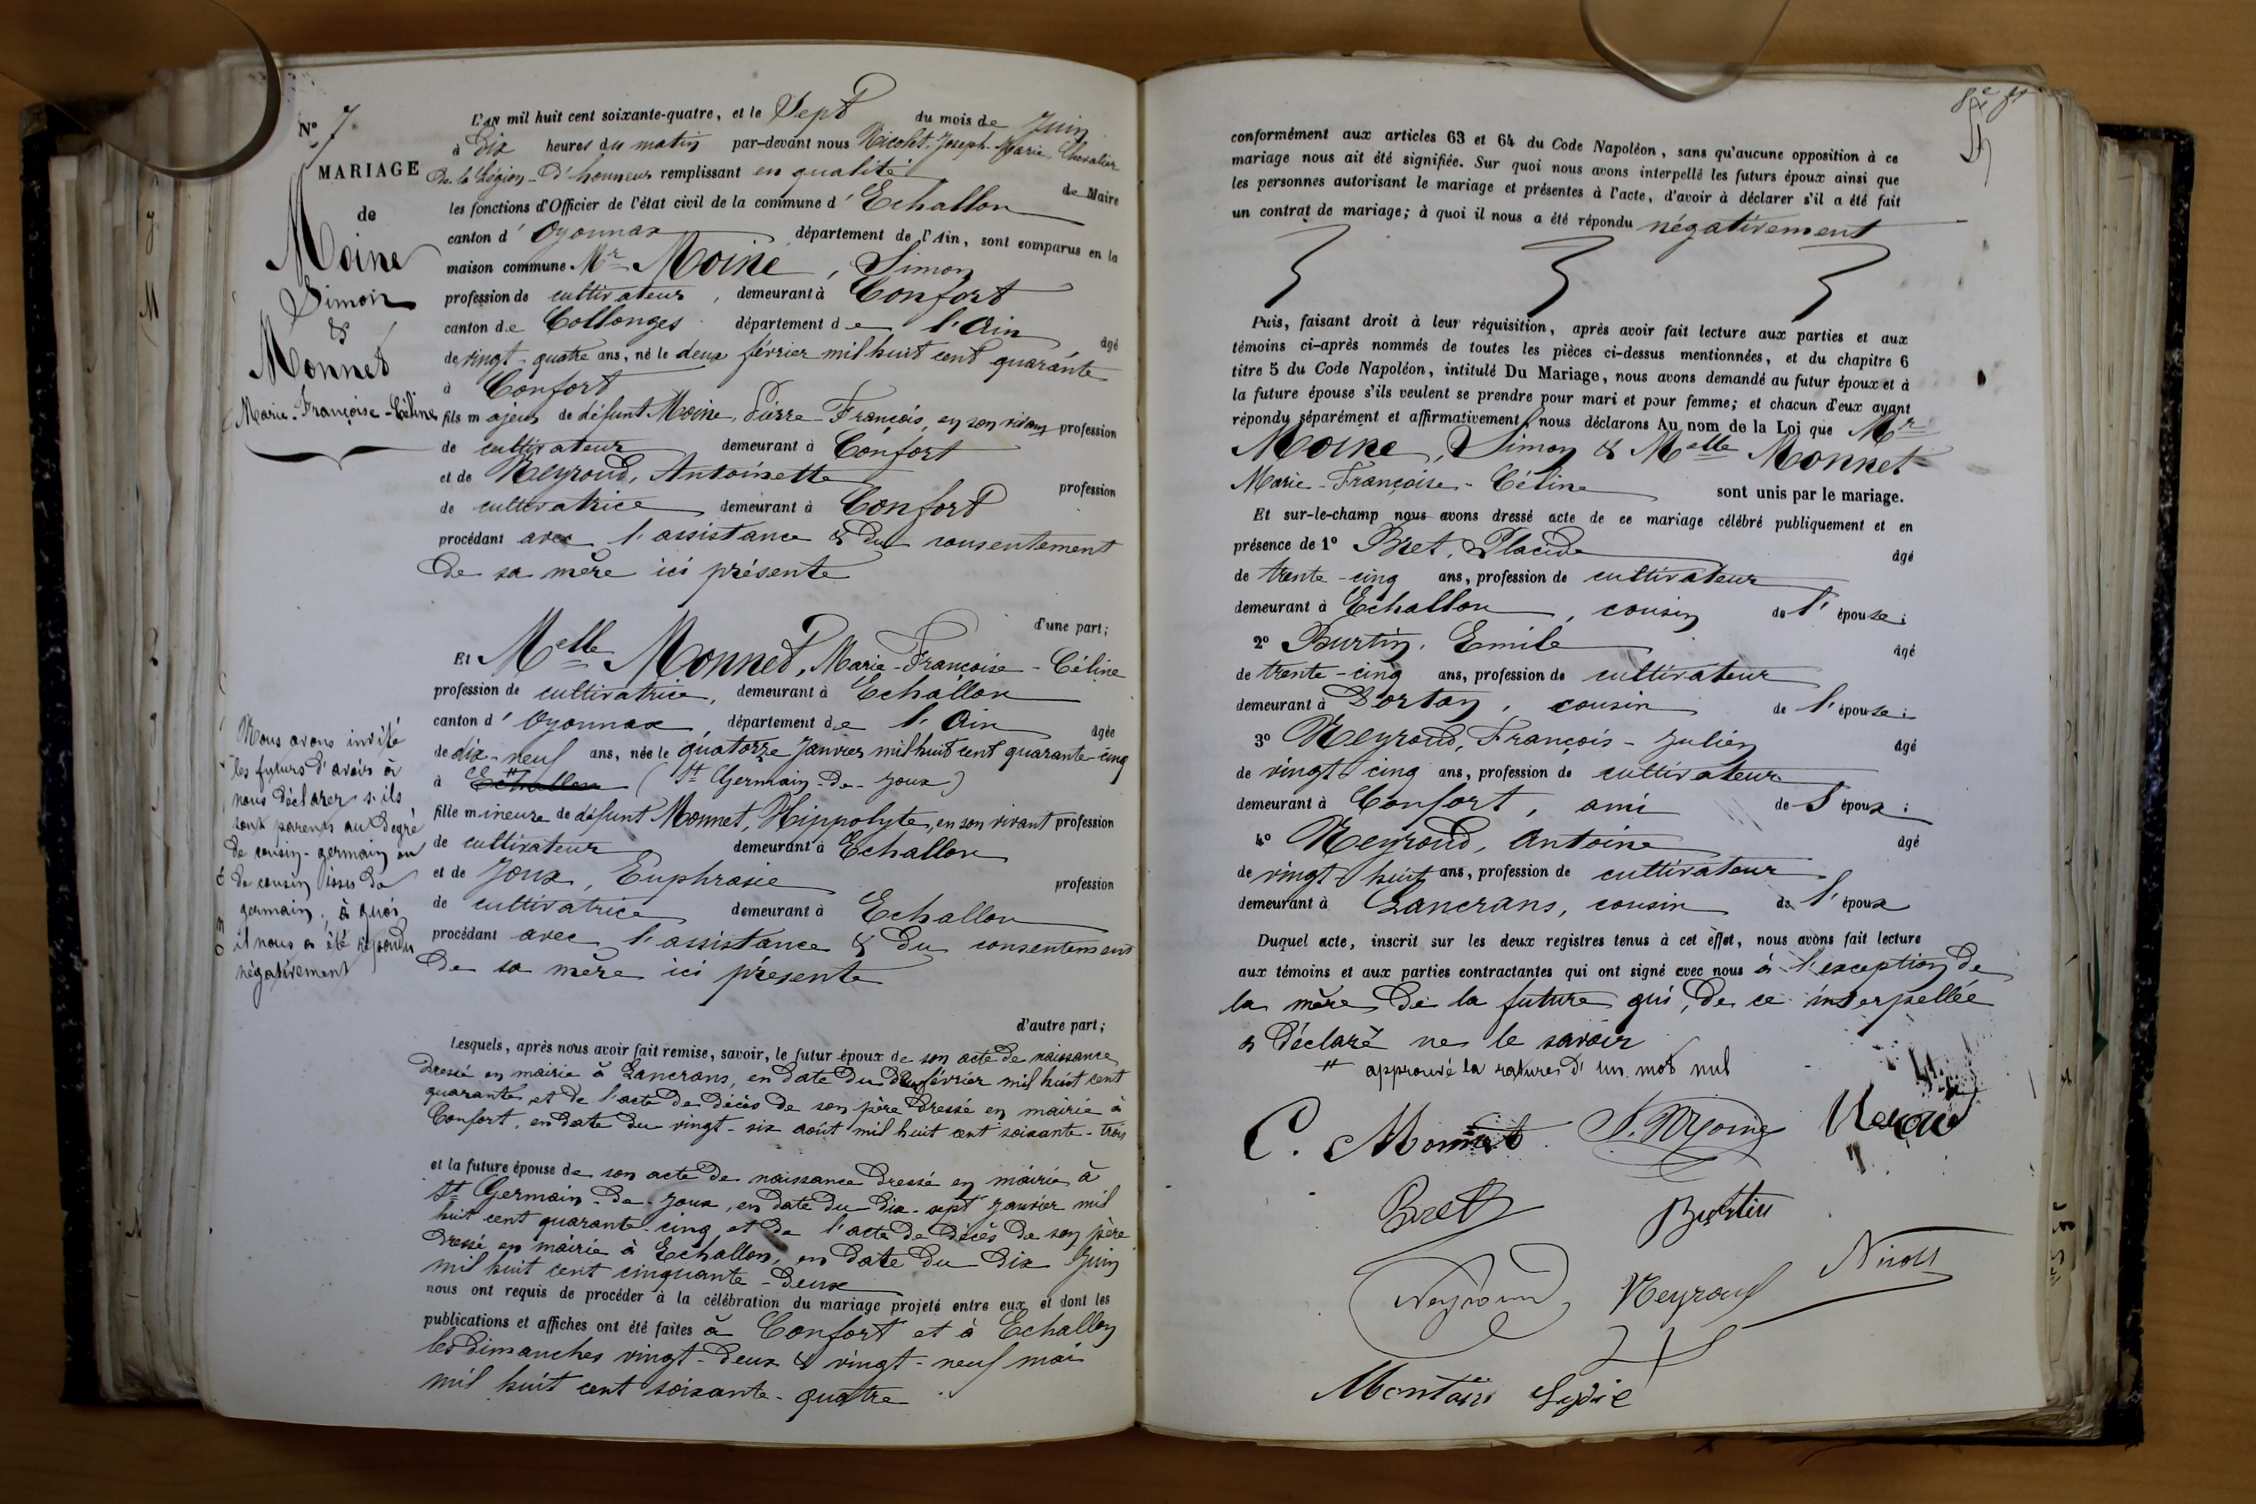 N° 7
MARIAGE
de
Moine
Simon
&
Monnet
Marie-Françoise-Céline
L'AN mil huit cent soixante-quatre, et le Sept du mois de Juin
à Dix heures du matin par-devant nous Nicolet, Joseph-Marie, Chevalier
De la Légion-D'honneur remplissant en qualité de Maire
les fonctions d'Officier de l'état civil de la commune d'Echallon
canton d'Oyonnax département de l'Ain, sont comparus en la
maison commune Mr Moine, Simon
profession de cultivateur, demeurant à Confort
canton de Collonges département de l'Ain âgé
de vingt-quatre ans, né le deux février mil huit cent quarante
à Confort
fils majeur de défunt Moine, Pierre-François, en son vivant profession
de cultivateur demeurant à Confort
et de Neyroud, Antoinette profession
de cultivatrice demeurant à Confort
procédant avec l'assistance & du consentement
De sa mère ici présente
d'une part;
Et Melle Monnet, Marie-Françoise-Céline
profession de cultivatrice, demeurant à Echallon
canton d'Oyonnax département de l'Ain âgée
de dix-neuf ans, née le quatorze Janvier mil huit cent quarante-cinq
à Echallon (St Germain-De-Joux)
fille mineure de défunt Monnet, Hippolyte, en son vivant profession
de cultivateur demeurant à Echallon
et de Joux, Euphrasie profession
de cultivatrice demeurant à Echallon
procédant avec l'assistance & du consentement
De sa mère ici présente
d'autre part;
Nous avons invité
les futurs d'avoir à
nous déclarer s'ils
sont parents au degré
de cousin-germain ou
de cousin issus de
germain, à quoi
il nous a été répondu
négativement
Lesquels, après nous avoir fait remise, savoir, le futur époux de son acte de naissance
Dressé en mairie à Lancrans, en date du deux février mil huit cent
quarante et de l'acte de décès de son père dressé en mairie à
Confort, en date du vingt-six août mil huit cent soixante-trois
et la future épouse de son acte de naissance dressé en mairie à
St Germain-de-Joux, en date du dix-sept janvier mil
huit cent quarante-cinq et de l'acte de décès de son père
Dressé en mairie à Echallon, en date du dix Juin
mil huit cent cinquante-deux
nous ont requis de procéder à la célébration du mariage projeté entre eux et dont les
publications et affiches ont été faites à Confort et à Echallon
les dimanches vingt-deux & vingt-neuf mai
mil huit cent soixante-quatre
conformément aux articles 63 et 64 du Code Napoléon, sans qu'aucune opposition à ce
mariage nous ait été signifiée. Sur quoi nous avons interpellé les futurs époux ainsi que
les personnes autorisant le mariage et présentes à l'acte, d'avoir à déclarer s'il a été fait
un contrat de mariage; à quoi il nous a été répondu négativement
Puis, faisant droit à leur réquisition, après avoir fait lecture aux parties et aux
témoins ci-après nommés de toutes les pièces ci-dessus mentionnées, et du chapitre 6
titre 5 du Code Napoléon, intitulé Du Mariage, nous avons demandé au futur époux et à
la future épouse s'ils veulent se prendre pour mari et pour femme; et chacun d'eux ayant
répondu séparément et affirmativement, nous déclarons Au nom de la Loi que Mr
Moine, Simon & Melle Monnet
Marie-Françoise-Céline sont unis par le mariage.
Et sur-le-champ nous avons dressé acte de ce mariage célébré publiquement et en
présence de 1° Bret, Placide âgé
de trente-cinq ans, profession de cultivateur
demeurant à Echallon, cousin de l'épouse;
2° Burtin, Emile âgé
de trente-cinq ans, profession de cultivateur
demeurant à Dortan, cousin de l'épouse;
3° Neyroud, François-Julien âgé
de vingt-cinq ans, profession de cultivateur
demeurant à Confort, ami de l'époux;
4° Neyroud, Antoine âgé
de vingt-huit ans, profession de cultivateur
demeurant à Lancrans, cousin de l'époux
Duquel acte, inscrit sur les deux registres tenus à cet effet, nous avons fait lecture
aux témoins et aux parties contractantes qui ont signé avec nous à l'exception de
la mère de la future qui, de ce interpellée
a déclaré ne le savoir
# approuvé la rature d'un mot nul
C. Monnet S. Moine
Bret Burtin
Neyroud Neyroud Nicolet